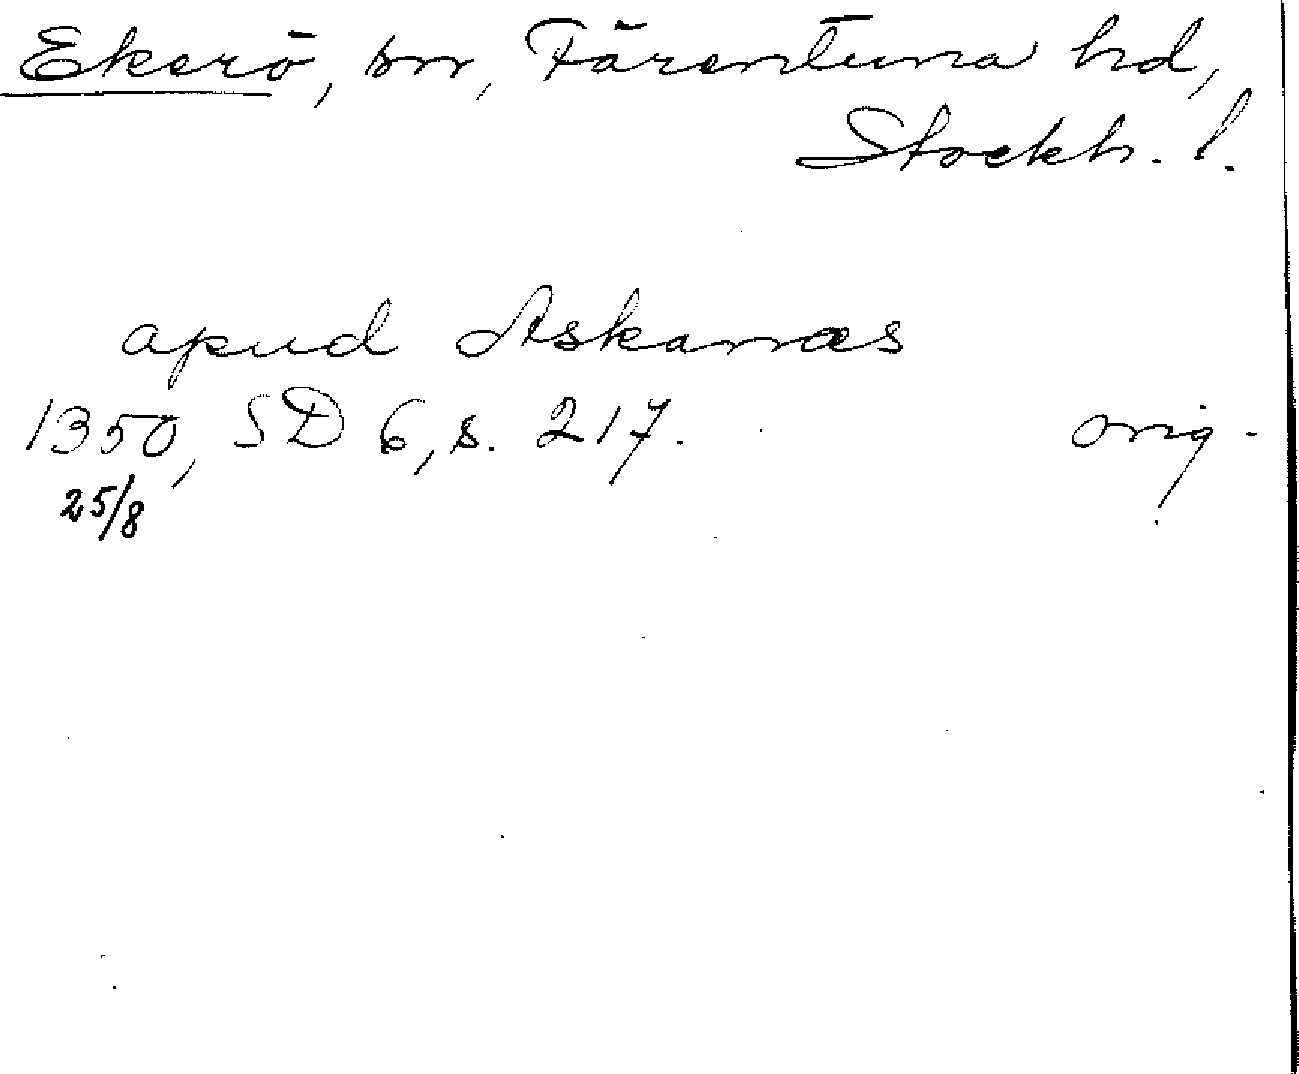 Ekerö, sn, Färentuna hd,
Stockh. l.
apud Askanæs
1350, SD 6, s. 217. orig.
25/8